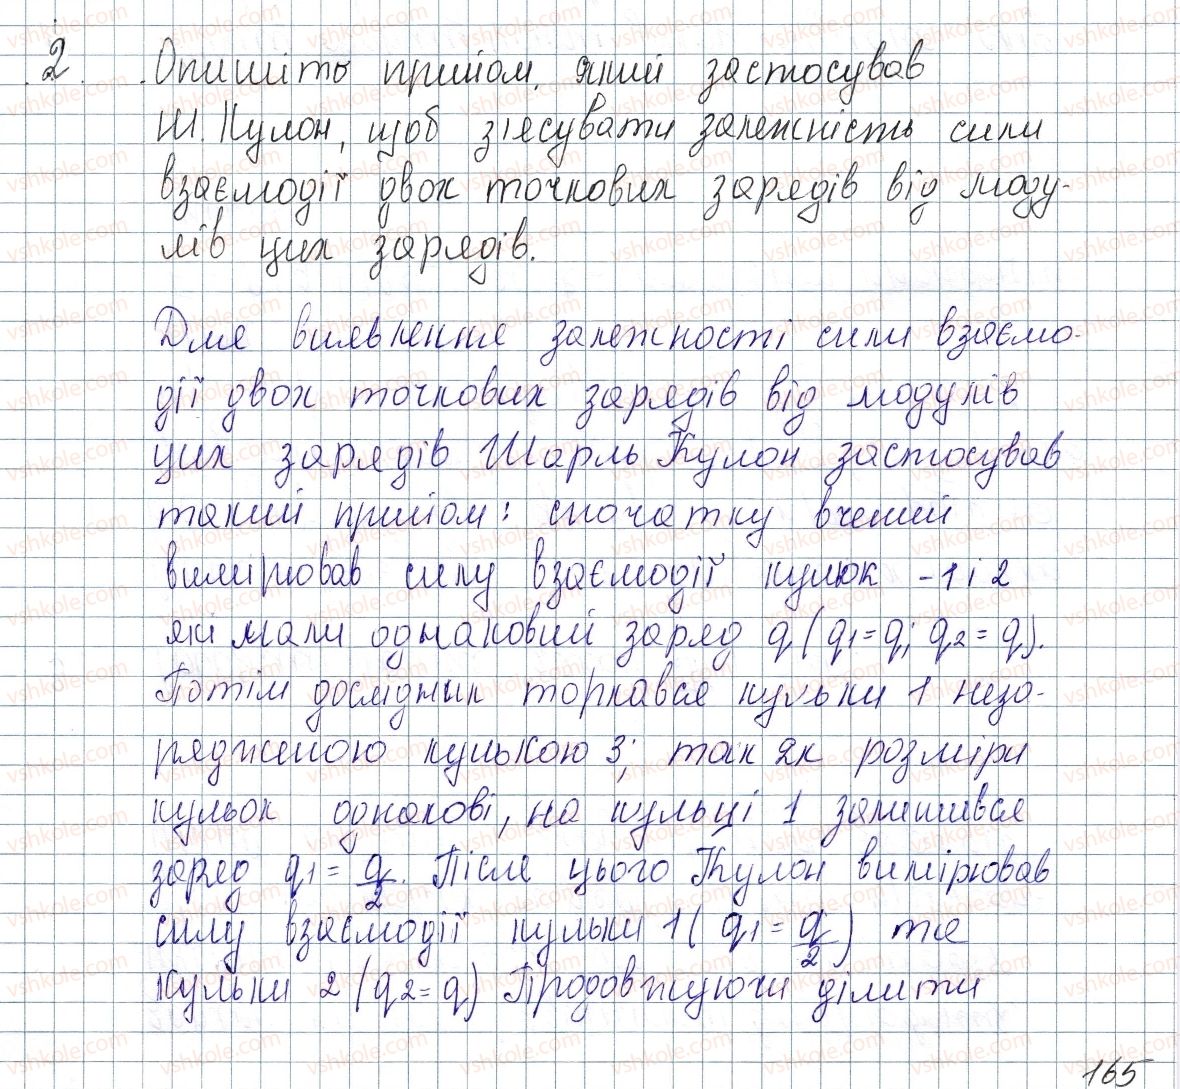 2. Опишіть прийом, який застосував
Ш. Кулон, щоб з'ясувати залежність сили
взаємодії двох точкових зарядів від моду-
лів цих зарядів.
Для виявлення залежності сили взаємо-
дії двох точкових зарядів від модулів
цих зарядів Шарль Кулон застосував
такий прийом: спочатку вчений
вимірював силу взаємодії кульок - 1 і 2
які мали однаковий заряд q (q1 = q; q2 = q).
Потім дослідник торкався кульки 1 неза-
рядженою кулькою 3; так як розміри
кульок однакові, на кульці 1 залишився
заряд q1 = q/2. Після цього Кулон вимірював
силу взаємодії кульки 1 (q1 = q/2) та
кульки 2 (q2 = q) Продовжуючи ділити
165